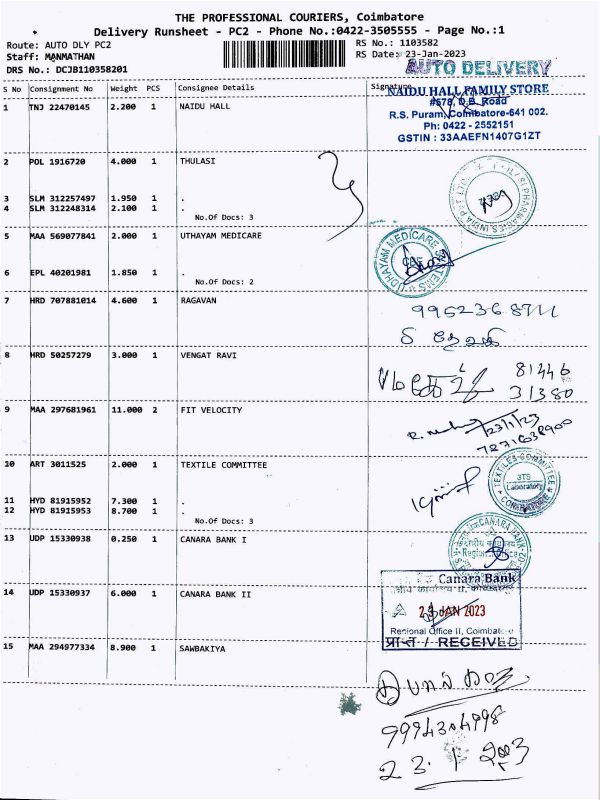 THE PROFESSIONAL COURIERS, Coimbatore
Delivery Runsheet - PC2 - Phone No.:0422-3505555 - Page No.:1
Route: AUTO DLY PC2
Staff: MANMATHAN
DRS No.: DCJB110358201
RS No.: 1103582
RS Date: 23-Jan-2023
AUTO DELIVERY
S No Consignment No Weight PCS Consignee Details Signature
1 TNJ 22470145 2.200 1 NAIDU HALL
NAIDU HALL FAMILY STORE
#578, D.B. Road
R.S. Puram, Coimbatore-641 002.
Ph: 0422 - 2552151
GSTIN : 33AAEFN1407G1ZT
2 POL 1916720 4.000 1 THULASI
3 SLM 312257497 1.950 1 .
4 SLM 312248314 2.100 1 .
No.Of Docs: 3
5 MAA 569077841 2.000 1 UTHAYAM MEDICARE
UDHAYAM MEDICARE SYSTEMS
CBE
6 EPL 40201981 1.850 1 .
No.Of Docs: 2
7 HRD 707881014 4.600 1 RAGAVAN
8 HRD 50257279 3.000 1 VENGAT RAVI
81446
31380
9 MAA 297681961 11.000 2 FIT VELOCITY
23/1/23
10 ART 3011525 2.000 1 TEXTILE COMMITTEE
TEXTILES COMMITTEE
Laboratory
COIMBATORE
11 HYD 81915952 7.300 1 .
12 HYD 81915953 8.700 1 .
No.Of Docs: 3
13 UDP 15330938 0.250 1 CANARA BANK I
CANARA BANK
Regional Office
14 UDP 15330937 6.000 1 CANARA BANK II
Canara Bank
23 JAN 2023
Regional Office II, Coimbatore
प्राप्त / RECEIVED
15 MAA 294977334 8.900 1 SAWBAKIYA
9994304998
23.1.2023